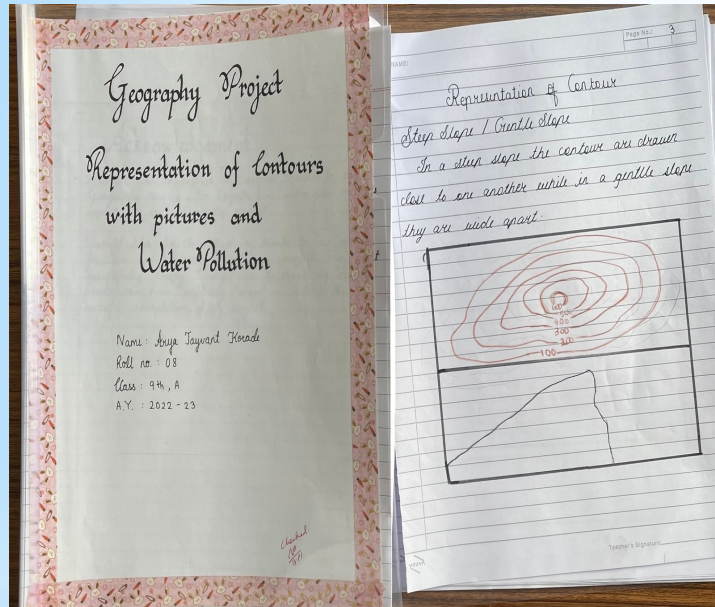 Geography Project
Representation of Contours
with pictures and
Water Pollution
Name : Arya Jaywant Korade
Roll no. : 08
Class : 9th, A
A.Y. : 2022-23
Checked
Page No.: 3
NAME:
Representation of Contour
Steep Slope / Gentle Slope
In a steep slope the contour are drawn
close to one another while in a gentle slope
they are wide apart.
600
500
400
300
200
100
Teacher's Signature